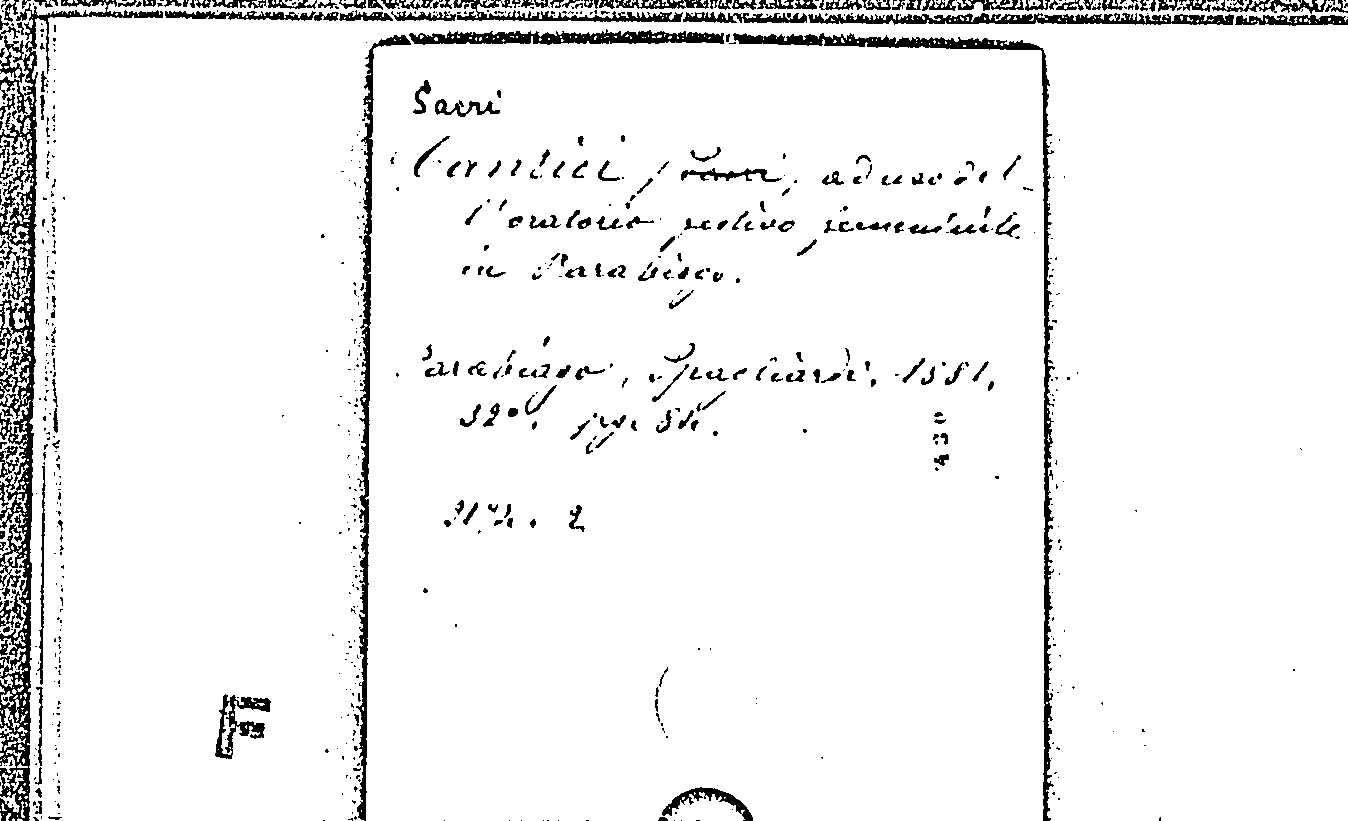 Sacri
Cantici sacri, ad uso del-
l'oratorio festivo femminile
in Parabiago.
Parabiago, Spagliardi, 1881,
32°. pg. 84.
430
F